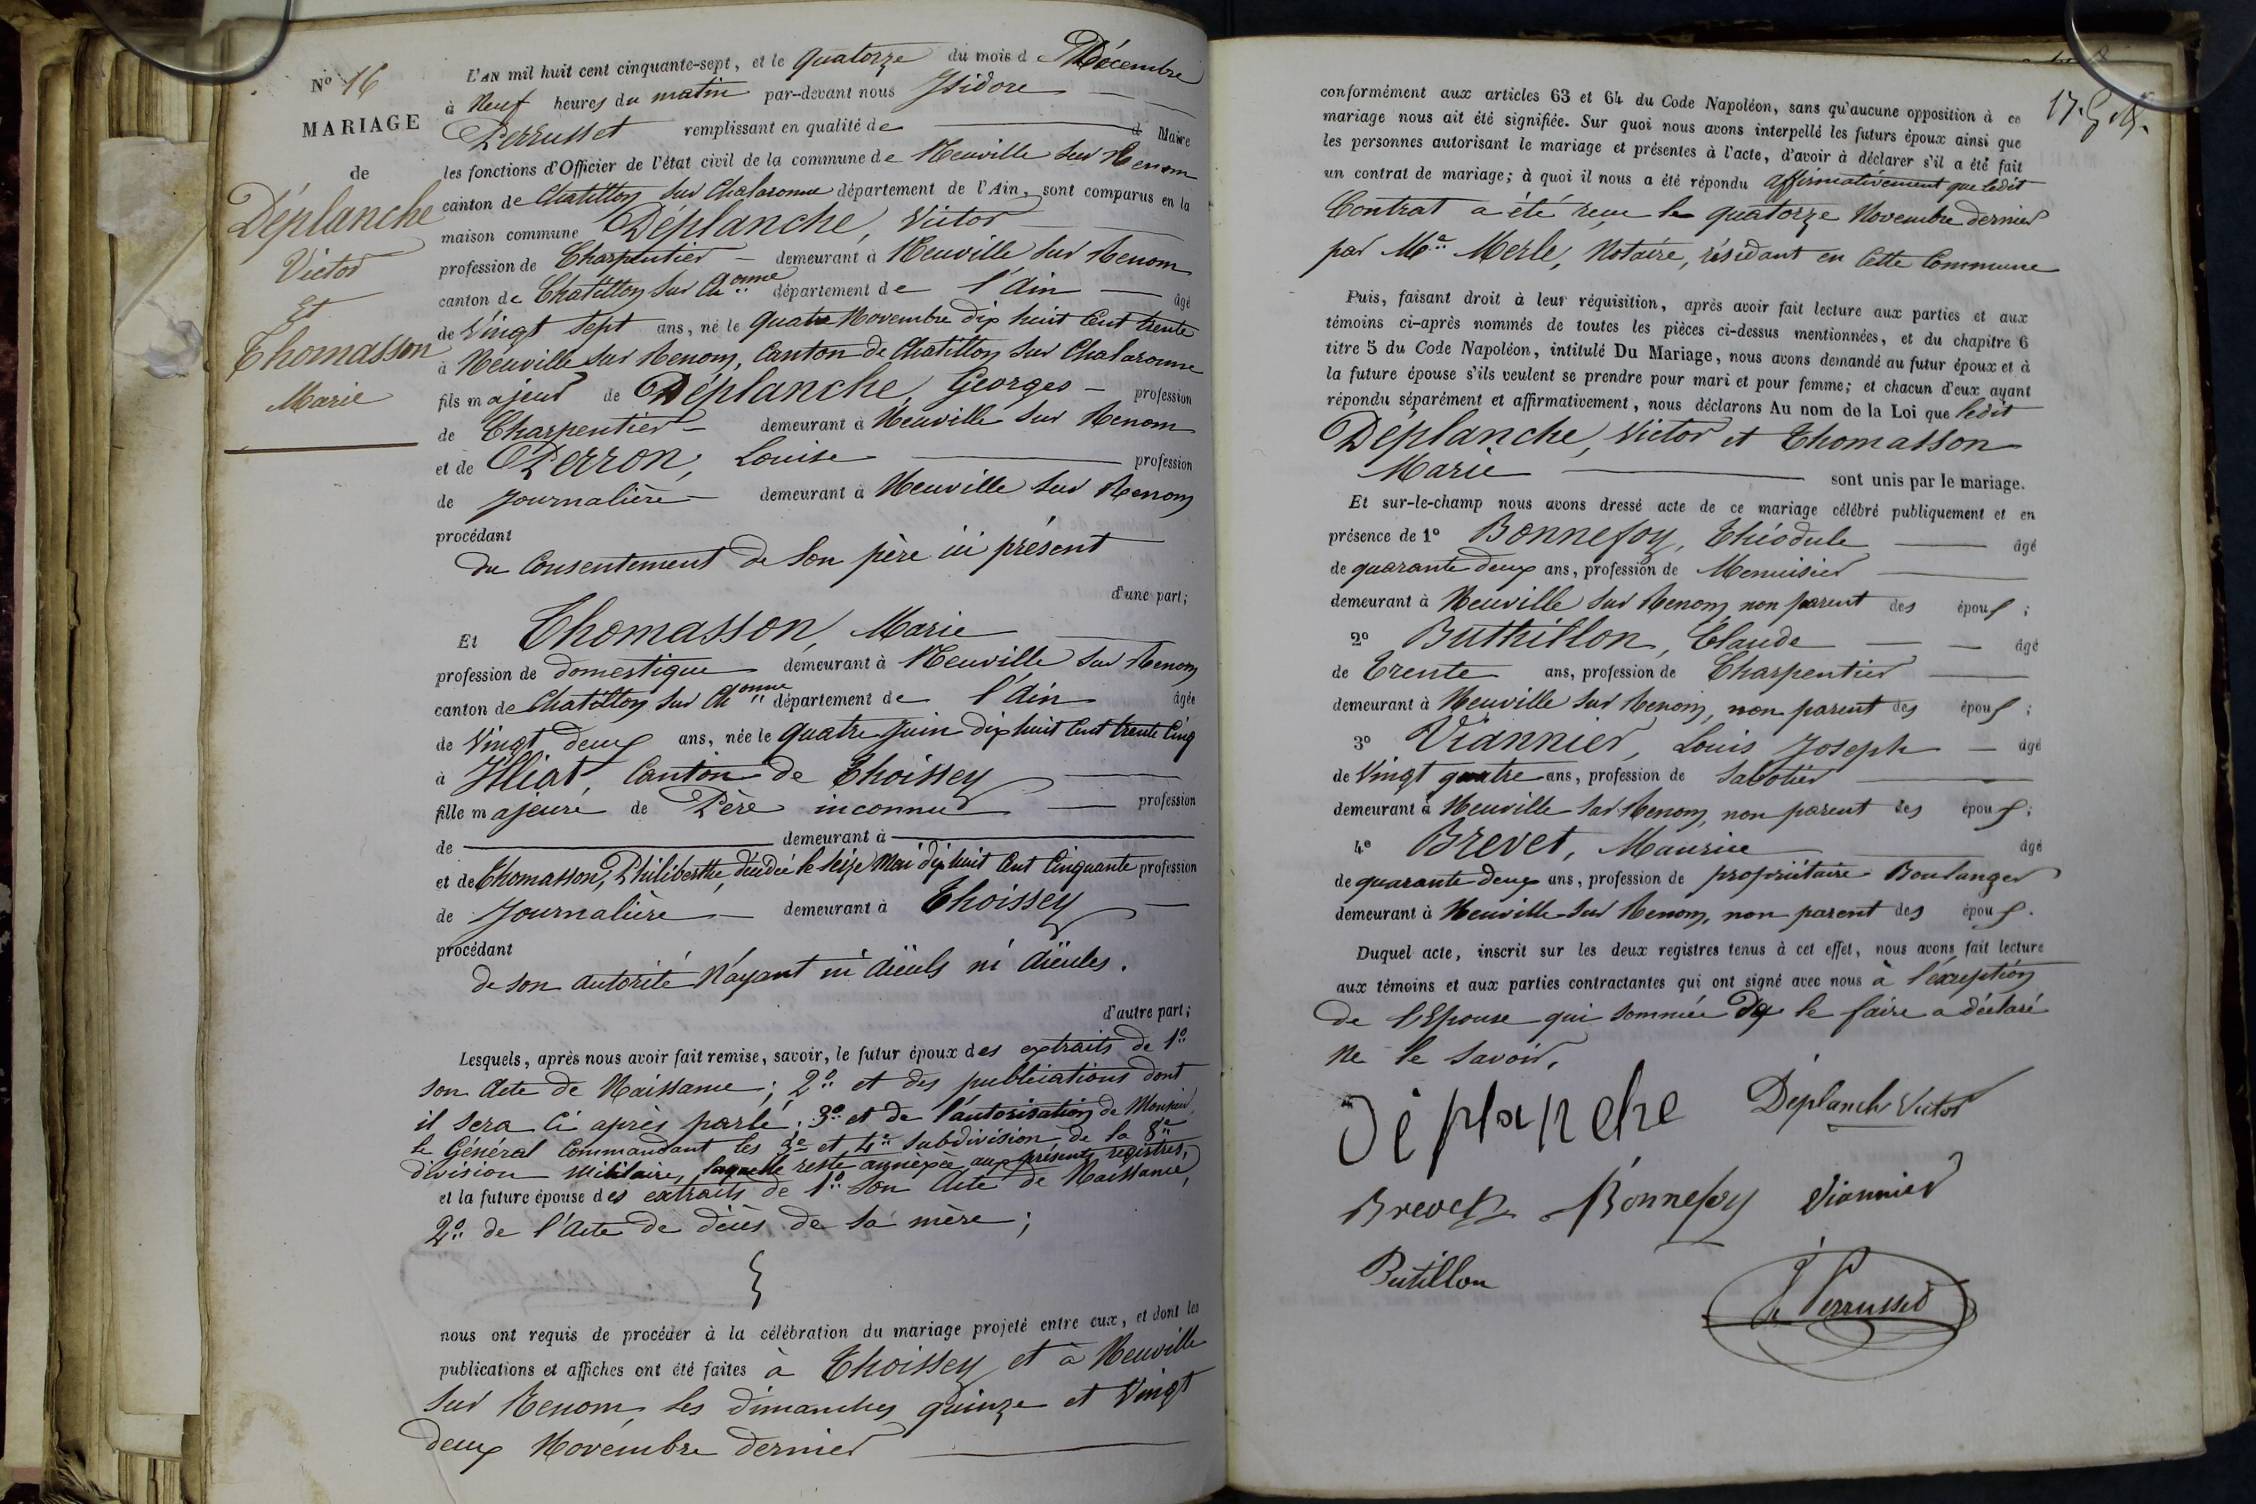 N° 16
MARIAGE
de
Déplanche
Victor
Et
Thomasson
Marie
L'AN mil huit cent cinquante-sept, et le quatorze du mois d Décembre
à Neuf heures du matin par-devant nous Isidore
Perrusset remplissant en qualité de Maire
les fonctions d'Officier de l'état civil de la commune de Neuville sur Renom
canton de Chatillon sur Chalaronne département de l'Ain, sont comparus en la
maison commune Déplanche, Victor
profession de Charpentier demeurant à Neuville sur Renom
canton de Chatillon sur Ch.onne département de l'Ain âgé
de Vingt sept ans, né le quatre Novembre dix huit Cent trente
à Neuville sur Renom, Canton de Chatillon sur Chalaronne
fils majeur de Déplanche, Georges profession
de Charpentier demeurant à Neuville sur Renom
et de Perron, Louise profession
de Journalière demeurant à Neuville sur Renom
procédant
du Consentement de son père ici présent
d'une part;
Et Thomasson, Marie
profession de domestique demeurant à Neuville sur Renom
canton de Chatillon sur Ch.onne département de l'Ain âgée
de Vingt deux ans, née le quatre Juin dix huit Cent trente Cinq
à Illiat, Canton de Thoissey
fille majeure de Père inconnu profession
de demeurant à
et de Thomasson, Philiberthe, décédée le seize Mai dix huit Cent Cinquante profession
de Journalière demeurant à Thoissey
procédant
de son autorité N'ayant ni aïeuls ni aïeules.
d'autre part;
Lesquels, après nous avoir fait remise, savoir, le futur époux des extraits de 1°
son Acte de Naissance; 2° et des publications dont
il sera Ci après parlé; 3° et de l'autorisation de Monsieur
le Général Commandant les 3e et 4e subdivision de la 8e
division Militaire, laquelle reste annexée aux présents registres,
et la future épouse des extraits de 1° son Acte de Naissance,
2° de l'Acte de décès de sa mère;
nous ont requis de procéder à la célébration du mariage projeté entre eux, et dont les
publications et affiches ont été faites à Thoissey et à Neuville
sur Renom, les dimanches quinze et Vingt
deux Novembre dernier
conformément aux articles 63 et 64 du Code Napoléon, sans qu'aucune opposition à ce
mariage nous ait été signifiée. Sur quoi nous avons interpellé les futurs époux ainsi que
les personnes autorisant le mariage et présentes à l'acte, d'avoir à déclarer s'il a été fait
un contrat de mariage; à quoi il nous a été répondu affirmativement que ledit
Contrat a été reçu le quatorze Novembre dernier
par Me Merle, Notaire, résidant en Cette Commune
Puis, faisant droit à leur réquisition, après avoir fait lecture aux parties et aux
témoins ci-après nommés de toutes les pièces ci-dessus mentionnées, et du chapitre 6
titre 5 du Code Napoléon, intitulé Du Mariage, nous avons demandé au futur époux et à
la future épouse s'ils veulent se prendre pour mari et pour femme; et chacun d'eux ayant
répondu séparément et affirmativement, nous déclarons Au nom de la Loi que ledit
Déplanche, Victor et Thomasson
Marie sont unis par le mariage.
Et sur-le-champ nous avons dressé acte de ce mariage célébré publiquement et en
présence de 1° Bonnefoy, Théodule âgé
de quarante deux ans, profession de Menuisier
demeurant à Neuville sur Renom, non parent des époux;
2° Buthillon, Claude âgé
de Trente ans, profession de Charpentier
demeurant à Neuville sur Renom, non parent des époux;
3° Viannier, Louis Joseph âgé
de Vingt quatre ans, profession de Sabotier
demeurant à Neuville sur Renom, non parent des époux;
4° Brevet, Maurice âgé
de quarante deux ans, profession de propriétaire Boulanger
demeurant à Neuville sur Renom, non parent des époux.
Duquel acte, inscrit sur les deux registres tenus à cet effet, nous avons fait lecture
aux témoins et aux parties contractantes qui ont signé avec nous à l'exception
de l'Epouse qui sommée de le faire a déclaré
ne le savoir.
Déplanche Déplanche Victor
Brevet Bonnefoy Viannier
Butillon
Perrusset